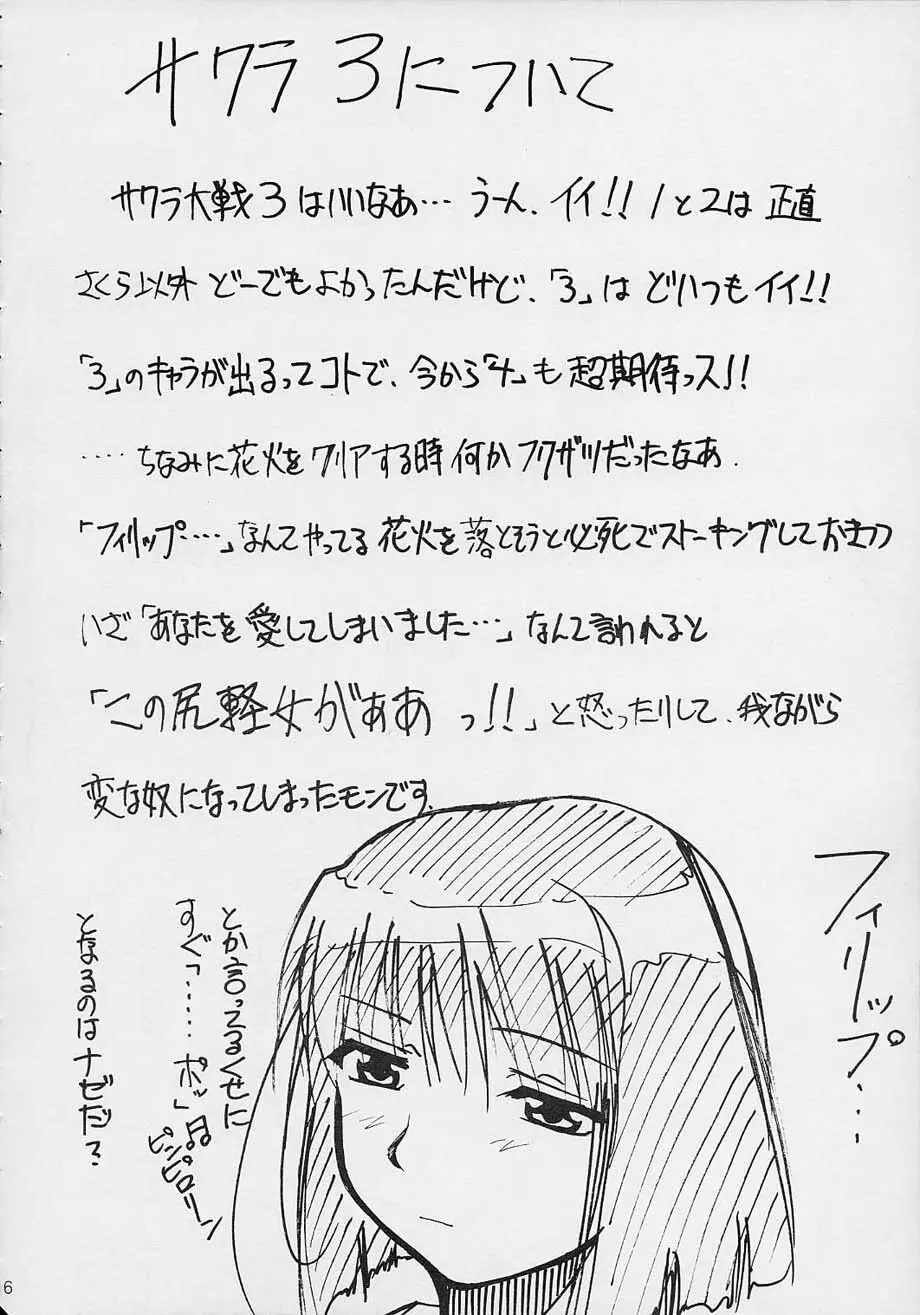 サクラ3について
サクラ大戦3はいいなあ… うーん、イイ!! 1と2は 正直
さくら以外 どーでもよかったんだけど、「3」は どいつもイイ!!
「3」のキャラが出るってコトで、今から「4」も 超期待っス!!
‥‥ちなみに花火を クリアする時 何か フクザツだったなあ.
「フィリップ‥‥」なんてやってる 花火を落とそうと必死でストーキングしておきつつ
いざ「あなたを 愛してしまいました…」なんて言われると
「この尻軽女がぁあ っ!!」と怒ったりして、我ながら
変な奴になってしまったモンです.
フィリップ…
とか言ってるくせに
すぐ「‥‥‥ポッ」♫
ピンピロリーン
となるのはナゼだ?
6